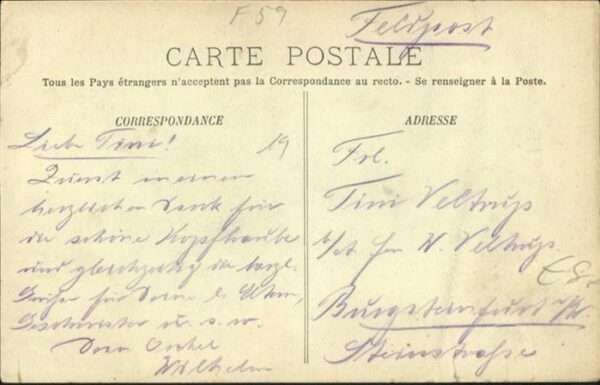 F 59
Feldpost
CARTE POSTALE
Tous les Pays étrangers n'acceptent pas la Correspondance au recto. - Se renseigner à la Poste.
CORRESPONDANCE
Liebe Tini!
19
Zuerst meinen
herzlichen Dank für
die schöne Kopfhaube
und gleichzeitig die herzl.
Grüße für Deine l. Eltern,
Geschwister u. s. w.
Dein Onkel
Wilhelm
ADRESSE
Frl.
Tini Veltrup
W. Veltrup
Burgsteinfurt
Steinstrasse